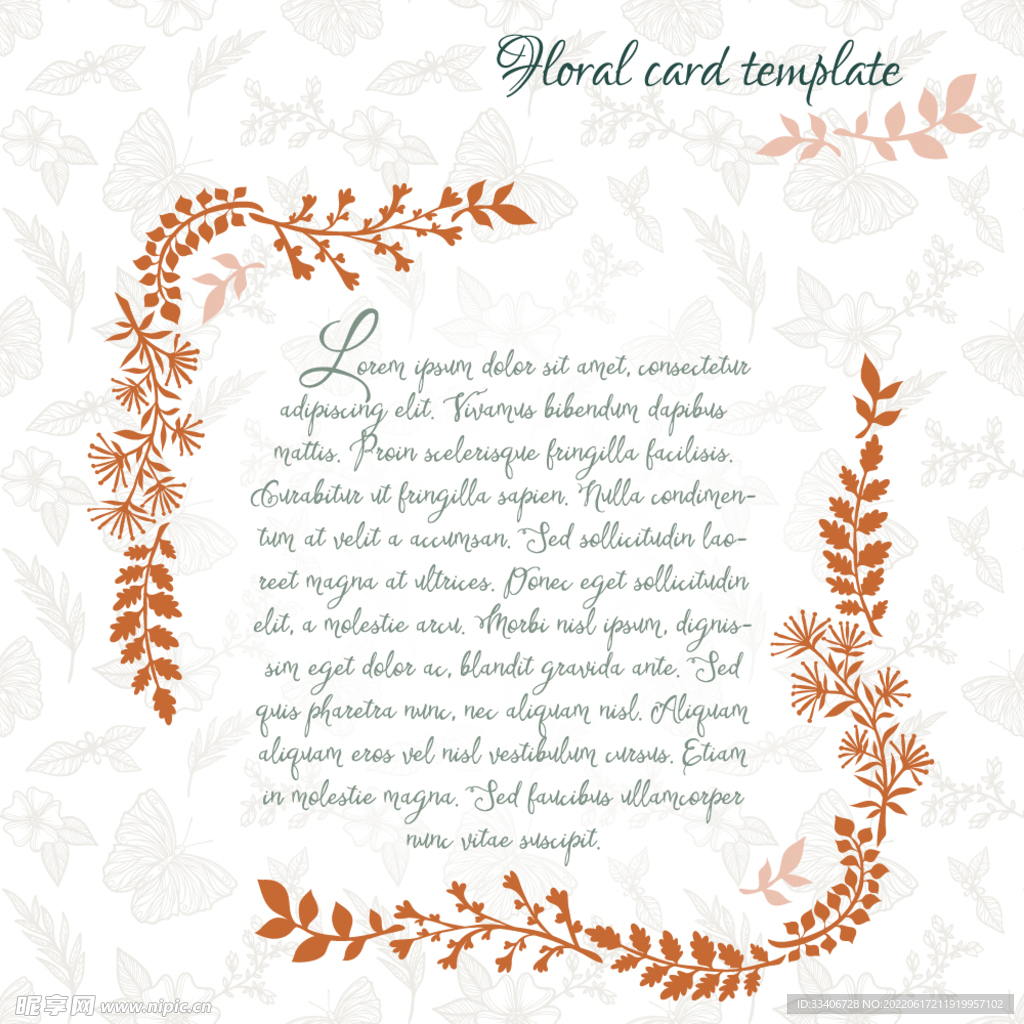 Floral card template
Lorem ipsum dolor sit amet, consectetur
adipiscing elit. Vivamus bibendum dapibus
mattis. Proin scelerisque fringilla facilisis.
Curabitur ut fringilla sapien. Nulla condimen-
tum at velit a accumsan. Sed sollicitudin lao-
reet magna at ultrices. Donec eget sollicitudin
elit, a molestie arcu. Morbi nisl ipsum, dignis-
sim eget dolor ac, blandit gravida ante. Sed
quis pharetra nunc, nec aliquam nisl. Aliquam
aliquam eros vel nisl vestibulum cursus. Etiam
in molestie magna. Sed faucibus ullamcorper
nunc vitae suscipit.
昵享网 www.nipic.cn
ID:33406728 NO:20220617211919957102